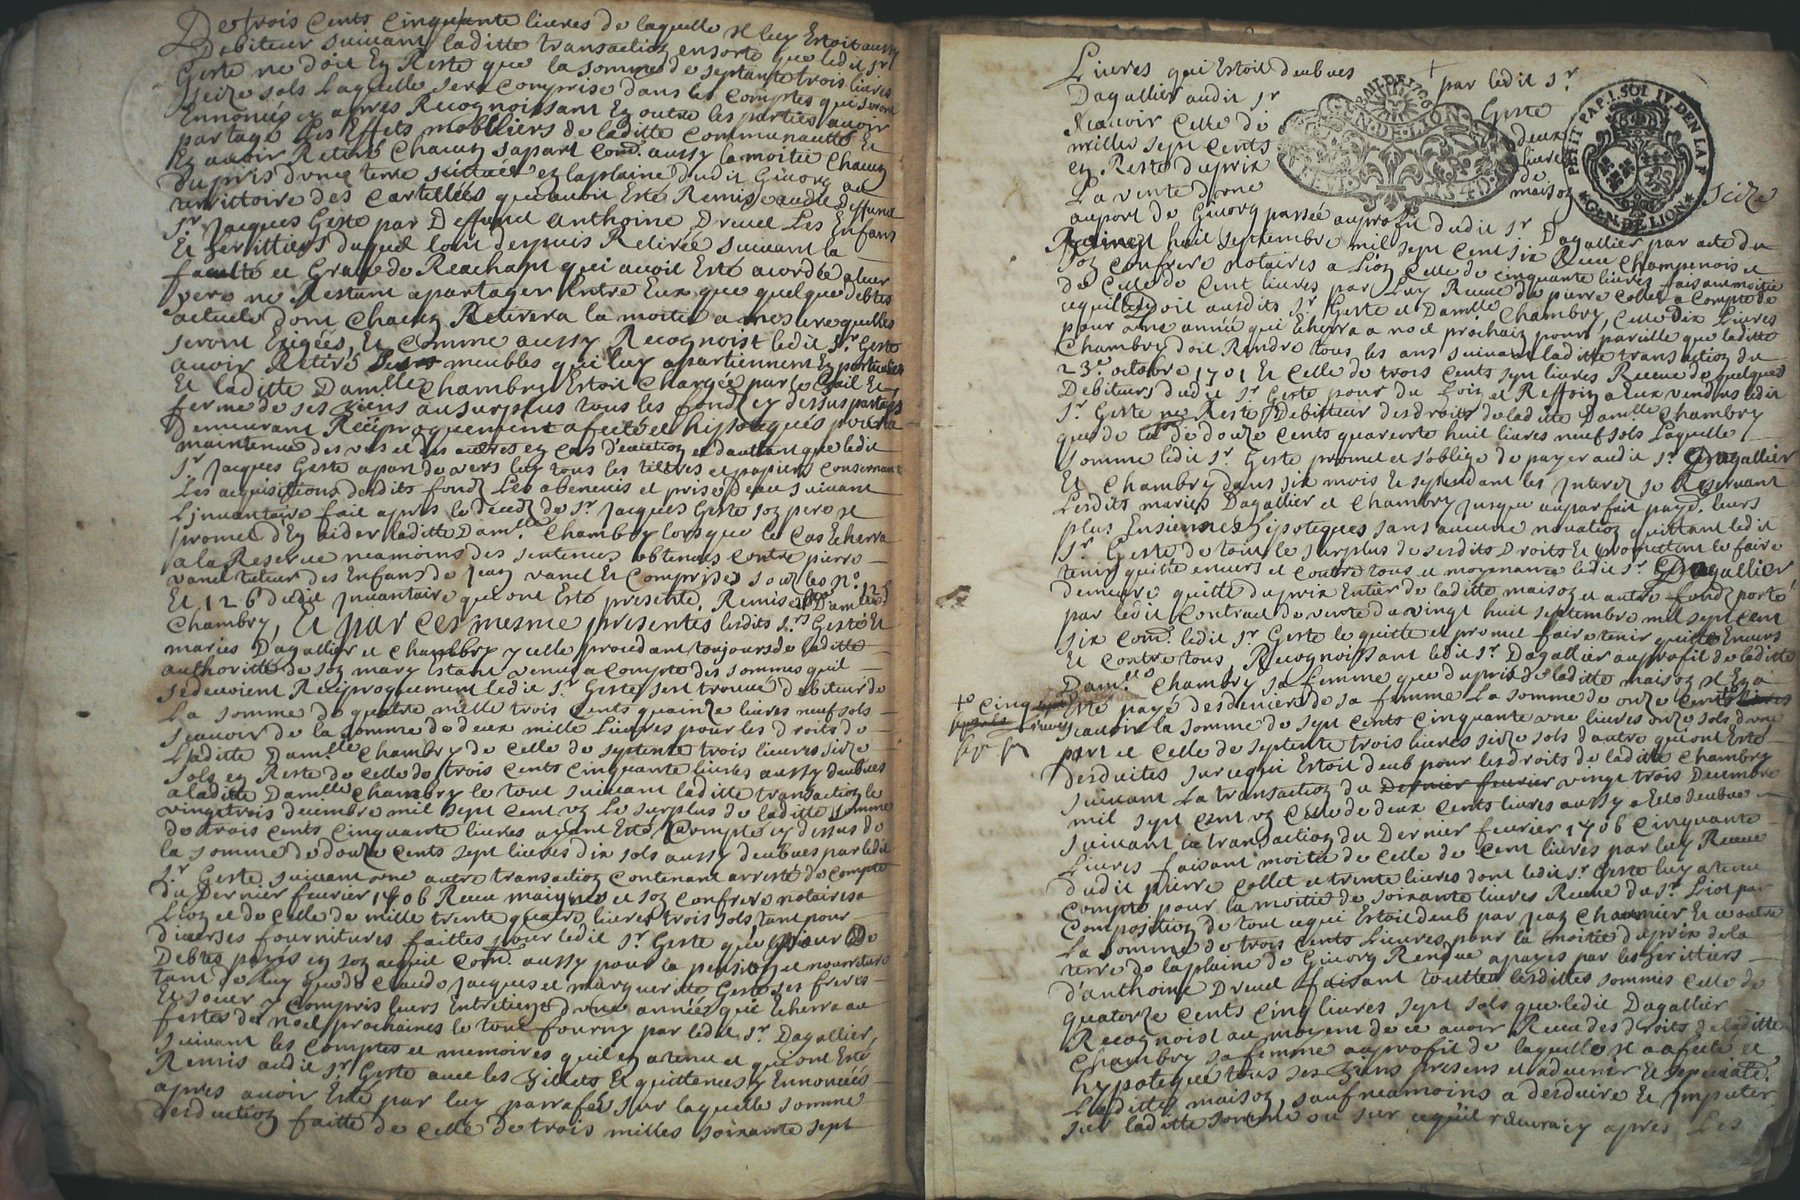 De trois cents cinquante liures de laquelle Il luy Estoit aussy
debiteur suiuant laditte transaction ensorte que ledit sr
Geste ne doit En Reste que la somme de septante trois liures
seize sols Laquelle sera comprise dans les comptes qui seront
Ennoncés cy apres Recognoissant En outre les parties auoir
partagé Les Effets mobiliers de laditte communautté Et
En auoir Retiré chacun sa part Com.e aussy la moitié chacun
du pris dvne terre scittuée en la plaine dudit Giuors au
territtoire des Cartellées qui auoit Esté Remise audit deffunt
Sr. Jacques Geste par Deffunt anthoine Dreuet Les Enfans
Et heritiers duquel l'ont despuis Retirée suiuant la
faculté et Grace de Reachapt qui auoit Esté acordée a leur
pere ne Restant a partager Entre Eux que quelque debtes
actuels dont chacun Retirera la moitié a mesure quelles
seront Exigées, Et comme aussy Recognoist ledit Sr. Geste
auoir Retiré meubles qui luy apartiennent En particulier
Et laditte Dam.lle Chambry Estoit chargée par le bail Et
ferme de ses biens au surplus tous les fondz cy dessus partagés
Demeurant Reciproquement afectés et hipotequés pour la
maintenue des vns et des autres en cas d'euiction et d'autant que ledit
Sr. Jacques Geste a part deuers luy tous les tiltres et papiers consernant
Les acquisitions desdits fondz Les abeneuis et prise d'eau suiuant
L'inuantaire fait apres le deced de Sr. Jacques Geste son pere Il
promet d'En aider laditte Dam.lle Chambry lors que le cas Echerra
a la Reserue neamoins des sentences obtenues contre pierre
vanel tuteur des Enfans de Jean vanel Et Comprises soubz les No. 125
Et 126 dudit Inuantaire qui ont Esté presenté, Remis a lad. Dam.lle
Chambry, Et par ces mesme presentes lesdits Srs Geste Et
mariés Dagallier et chambry y celle procedant toujours de laditte
authoritté de son mary Estant venus a compte des sommes quil
se deuoient Reciproquement ledit Sr. Geste sest trouué debiteur de
La somme de quatre mille trois cents quainze liures neuf sols
scauoir de la somme de deux mille Liures pour les droits de
Laditte Dam.lle Chambry de celle de septente trois lieures seize
Sols en Reste de celle de trois cents cinquante liures aussy deubues
a laditte Damlle Chambry le tout suiuant laditte transaction le
vingt trois decembre mil sept cent vn Le surplus de laditte somme
de trois cents cinquante liures ayant Esté compté cy dessus de
la somme de douze cents sept liures dix sols aussy deubues par ledit
Sr. Geste suiuant vne autre transaction contenant arresté de compte
du Dernier feurier 1706 Receu et son Confrere notaires a
Lion et de celle de mille trente quatre liures trois sols, tant pour
diuerses fournitures faittes pour ledit Sr. Geste que pour de
Debtes payés en son acquit com.e aussy pour la pension et nourriture
tant de luy que de Claude Jacques et marguerite Geste ses freres
Et soeur y compris leurs Entretiens dvne année qui Echerra au
festes de noel prochaines le tout fourny par ledit Sr. Dagallier,
suiuant les comptes et memoires quil en a tenu et qui ont Esté
Remis audit Sr. Geste auec les billets Et quittences y Ennoncées
apres auoir Esté par luy parrafés sur laquelle somme
desduction faitte de celle de trois milles soixante sept
Liures qui Estoit deubues par ledit Sr.
Dagallier audit Sr Geste
scauoir celle de deux
mille sept cents liures
en Reste du prix de
La vente dvne maison size
au port de Giuors passée au profit dudit Sr Dagallier par acte du
vingt huit septembre mil sept cent six Receu Champenois et
son confrere notaires a Lion celle de cinquante liures faisant moitié
de celle de cent liures par Luy Receue de pierre collet a compte de
ce quil deuoit ausdits Sr. Geste et Damlle Chambry, celle dix liures
pour vne année qui Echerra a noel prochain pour pareille que laditte
Chambry doit Rendre tous les ans suiuant laditte transaction du
23e. octobre 1701 Et celle de trois cents sept liures Receue de quelques
Debiteurs dudit Sr Geste pour du foin et Reffoin a eux vendus ledit
Sr. Geste ne Reste Debitteur des droits de laditte Damlle Chambry
que de de douze cents quarente huit liures neuf sols Laquelle
somme ledit Sr Geste promet et s'oblige de payer audit Sr. Dagallier
Et Chambry dans six mois Et cependant les Interez se Reseruant
Lesdits mariés Dagallier et Chambry Jusque au parfait payé. leurs
plus Ensiennes hipoteques sans aucune nouation quittant ledit
Sr. Geste de tout le surplus de sesdits droits Et promettent le faire
tenir quitte enuers et contre tous et moyenant ce ledit Sr. Dagallier
demeure quitte du prix Entier de laditte maison et autre fondz porté
par ledit Contract de vente du vingt huit septembre mil sept cent
six com.e ledit Sr Geste le quitte et promet faire tenir quitte Enuers
Et contre tous, Recognoissant ledit Sr. Dagallier au profit de laditte
Dam.lle Chambry sa femme que du pris de laditte maison Il En a
Esté payé des deniers de sa femme La somme de onze cents liures
cinq
liures
scauoir la somme de sept cents cinquante vne liures onze sols dvne
part et celle de septente trois liures seize sols d'autre qui ont Esté
desduites sur ce qui Estoit deub pour les droits de laditte Chambry
suiuant La transaction du Dernier feurier vingt trois Decembre
mil sept cent vn celle de deux cents liures aussy a Elle deubue
suiuant la transaction du Dernier feurier 1706 Cinquante
Liures faisant moitié de celle de cent liures par luy Receue
dudit pierre Collet et trente liures dont ledit Sr. Geste luy a tenu
compte pour la moitié de soixante liures Receue du Sr. Liot par
Composition de tout ce qui Estoit deub par Jean Et ce outre
La somme de trois cents Lieures pour la moitié du prix de la
terre de la plaine de Giuors Rendue a payés par les heritiers
d'anthoine Dreuet faisant touttes lesdittes sommes celle de
quatorze cents cinq liures sept sols que ledit Dagallier
Recognoist au moyen de ce auoir Receu des droits de laditte
Chambry sa femme au profit de laquelle Il a afecté et
hypotequé tous ses biens presens et aduenir Et speciale.t
Laditte maison, sauf neamoins a desduire Et Imputer
sur laditte somme ou sur ce quil receura cy apres Les
GEN. DE LION
PETIT PAP. 1. SOL IV. DEN LA F
GEN. DE LION